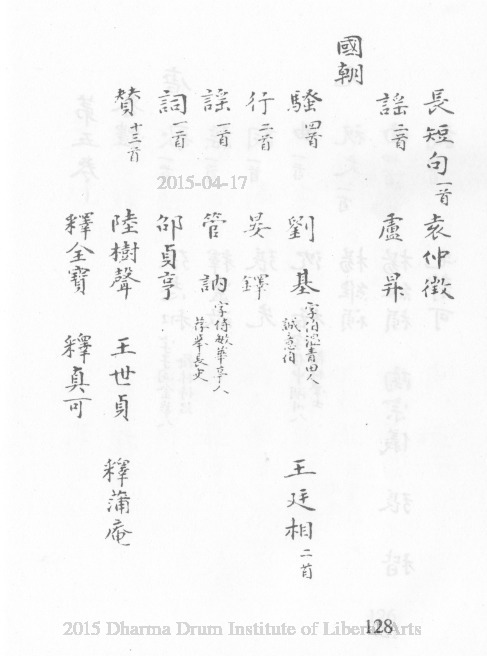 長短句一首 袁仲徵
謡二首 盧昇
國朝
騷四首 劉基字伯温青田人誠意伯 王廷相二首
行二首 晏鐸
謡一首 管訥字侍敏華亭人薦舉長史
詞一首 邵貞亨
贊十三首 陸樹聲 王世貞 釋蒲庵
釋全寶 釋真可
2015-04-17
2015 Dharma Drum Institute of Liberal Arts
128